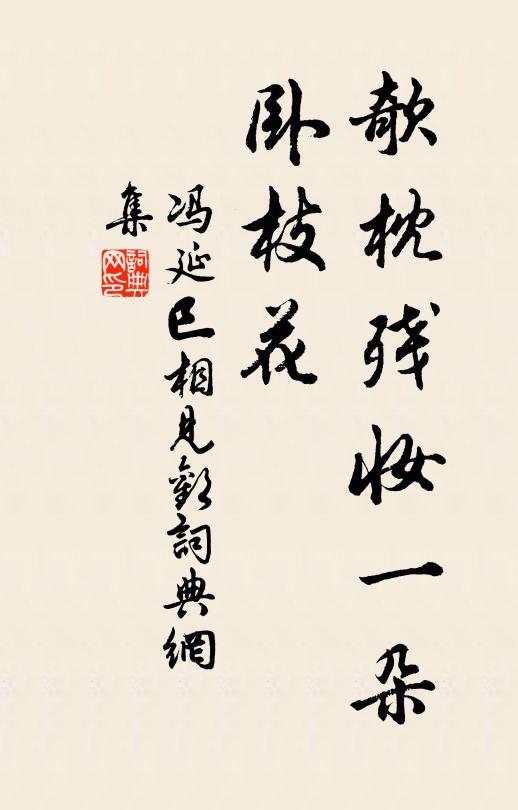 欹枕残妆一朵
卧枝花
冯延巳相见欢詞典網
集
詞典网印